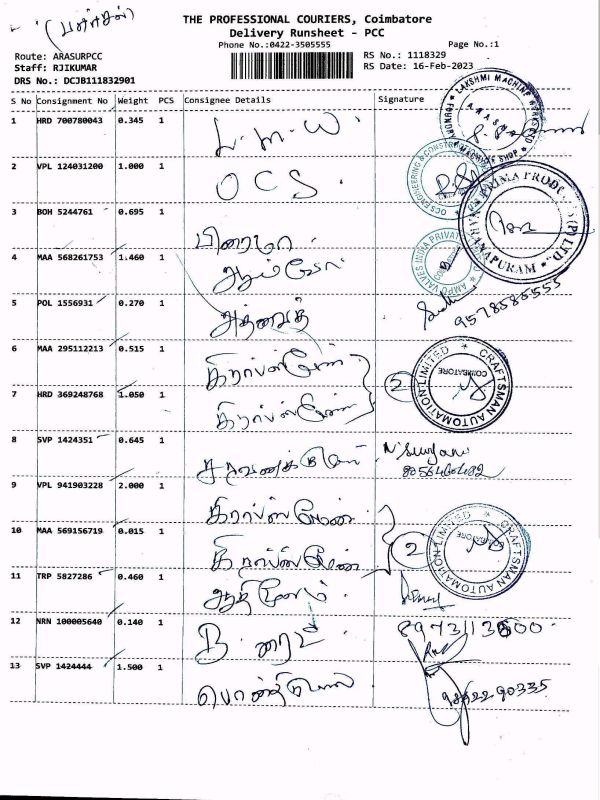 (பார்சல்)
THE PROFESSIONAL COURIERS, Coimbatore
Delivery Runsheet - PCC
Phone No.:0422-3505555 Page No.:1
Route: ARASURPCC RS No.: 1118329
Staff: RJIKUMAR RS Date: 16-Feb-2023
DRS No.: DCJB111832901
S No Consignment No Weight PCS Consignee Details Signature
1 HRD 700780043 0.345 1 L. M. W.
LAKSHMI MACHINE WORKS LTD FOUNDRY MACHINE SHOP
2 VPL 124031200 1.000 1 OCS.
OCS ENGINEERING & CONSTR
3 BOH 5244761 0.695 1 பிரைமா
PRIMA PRODU (P) LTD.
4 MAA 568261753 1.460 1
AMPO VALVES INDIA PRIVAT
5 POL 1556931 0.270 1 9578585555
6 MAA 295112213 0.515 1 கிராப்ஸ்மேன்
7 HRD 369248768 1.050 1 கிராப்ஸ்மேன் 2
CRAFTSMAN AUTOMATION LIMITED COIMBATORE
8 SVP 1424351 0.645 1
9 VPL 941903228 2.000 1 கிராப்ஸ்மேன்
10 MAA 569156719 0.015 1 கிராப்ஸ்மேன் 2
CRAFTSMAN AUTOMATION LIMITED COIMBATORE
11 TRP 5827286 0.460 1
12 NRN 100005640 0.140 1 B.
13 SVP 1424444 1.500 1